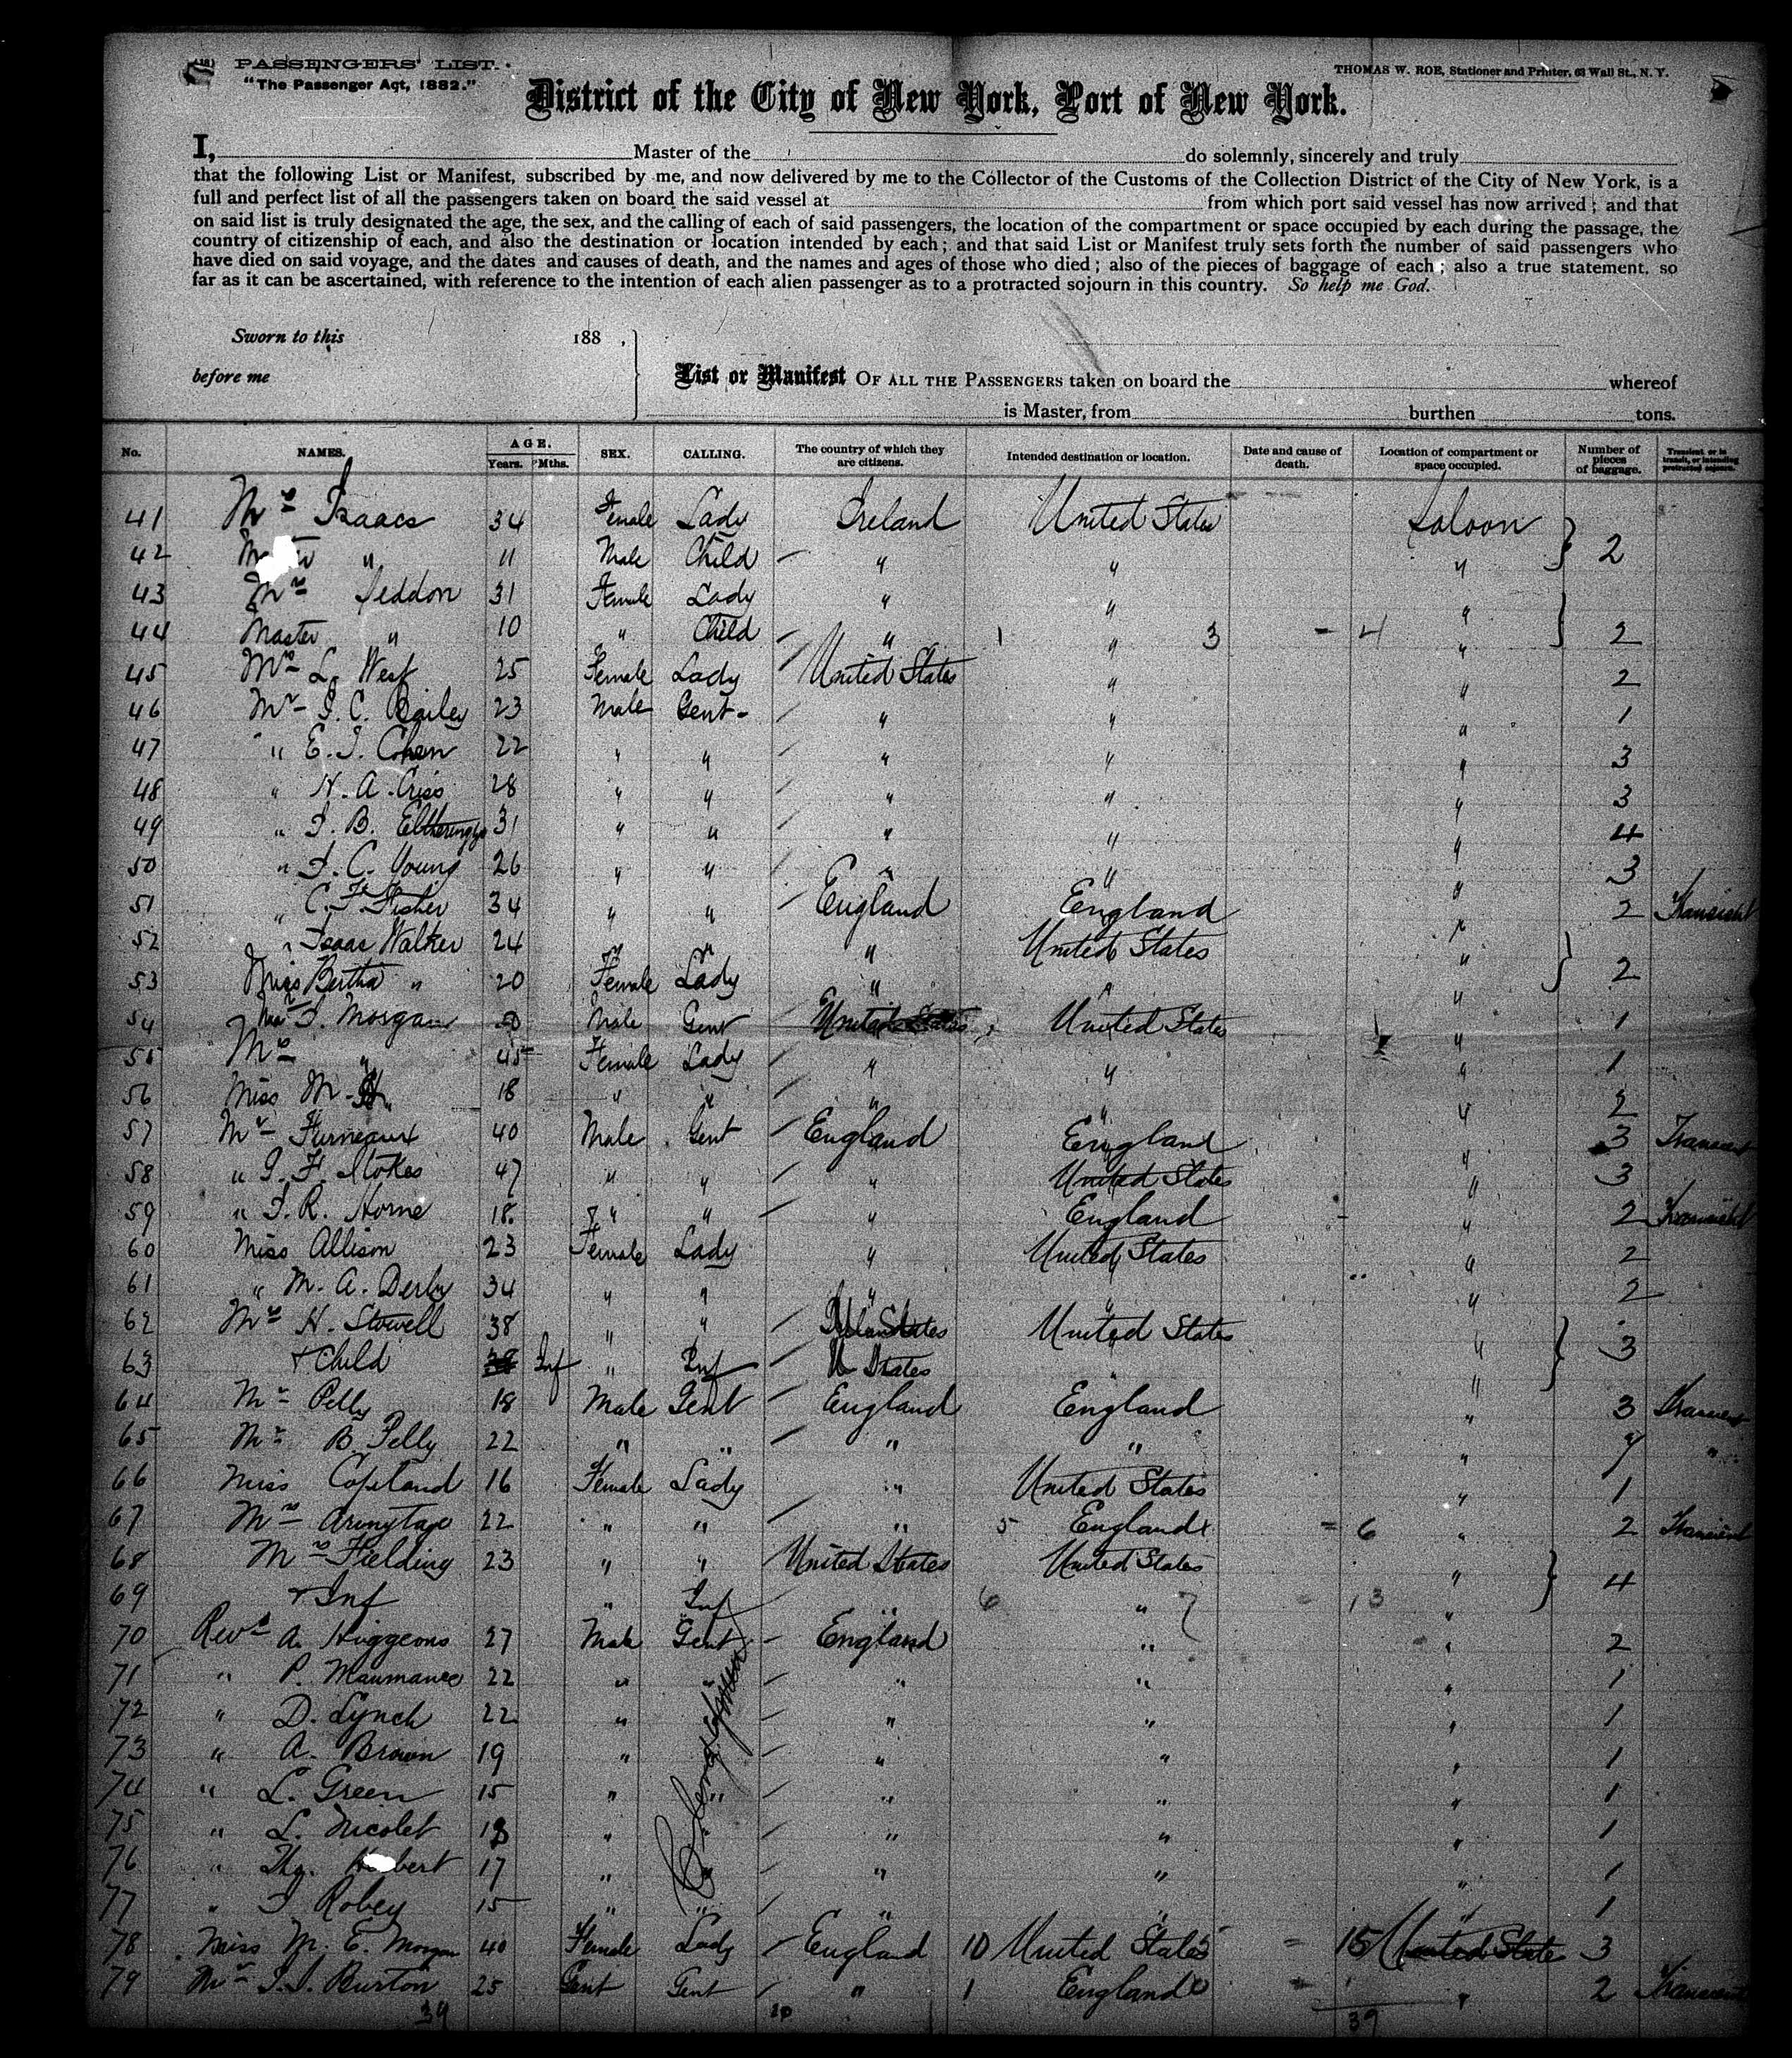 PASSENGERS' LIST.
"The Passenger Act, 1882."
THOMAS W. ROE, Stationer and Printer, 63 Wall St., N. Y.
District of the City of New York, Port of New York.
I, Master of the do solemnly, sincerely and truly
that the following List or Manifest, subscribed by me, and now delivered by me to the Collector of the Customs of the Collection District of the City of New York, is a
full and perfect list of all the passengers taken on board the said vessel at from which port said vessel has now arrived; and that
on said list is truly designated the age, the sex, and the calling of each of said passengers, the location of the compartment or space occupied by each during the passage, the
country of citizenship of each, and also the destination or location intended by each; and that said List or Manifest truly sets forth the number of said passengers who
have died on said voyage, and the dates and causes of death, and the names and ages of those who died; also of the pieces of baggage of each; also a true statement, so
far as it can be ascertained, with reference to the intention of each alien passenger as to a protracted sojourn in this country. So help me God.
Sworn to this 188 ,
before me
List or Manifest OF ALL THE PASSENGERS taken on board the whereof
is Master, from burthen tons.
No. NAMES. AGE. Years. Mths. SEX. CALLING. The country of which they are citizens. Intended destination or location. Date and cause of death. Location of compartment or space occupied. Number of pieces of baggage. Transient or in transit, or intending protracted sojourn.
41 Mrs Isaacs 34 Female Lady Ireland United States Saloon
42 " 11 Male Child " " " 2
43 Mrs Seddon 31 Female Lady " " "
44 Master " 10 " Child " " 3 - 4 " 2
45 Mrs L. West 25 Female Lady United States " " 2
46 Mr C. Bailey 23 Male Gent " " " 1
47 " E. J. Cohen 22 " " " " " 3
48 " H. A. Criss 28 " " " " " 3
49 " B. 31 " " " " " 4
50 " C. Young 26 " " " " " 3
51 " C. F. Fisher 34 " " England England " 2 Transient
52 " Isaac Walker 24 " " " United States "
53 Miss Bertha " 20 Female Lady " " " 2
54 Mr Morgan 50 Male Gent United States United States " 1
55 Mrs " 45 Female Lady " " " 1
56 Miss M. " 18 " " " " " 2
57 Mr Furneaux 40 Male Gent England England " 3 Transient
58 " F. Stokes 47 " " " United States " 3
59 " R. Horne 18 " " " England " 2 Transient
60 Miss Allison 23 Female Lady " United States " 2
61 " M. A. Derby 34 " " " " " 2
62 Mrs H. Stowell 38 " " United States "
63 + Child Inf " Inf U States " " 3
64 Mr Pelly 18 Male Gent England England " 3 Transient
65 Mr B. Pelly 22 " " " " " 7 "
66 Miss Copeland 16 Female Lady " United States " 1
67 Mrs Armytage 22 " " " 5 England - 6 " 2 Transient
68 Mrs Fielding 23 " " United States United States "
69 + Inf " Inf " 6 " 7 - 13 " 4
70 Revd A. Huggeons 27 Male Gent England " " 2
71 " P. Maumance 22 " " " " " 1
72 " D. Lynch 22 " " " " 1
73 " A. Brown 19 " " " " 1
74 " L. Green 15 " " " " " 1
75 " L. Nicolet 18 " " " " 1
76 " 17 " " " " 1
77 " Robey 15 " " " " " 1
Clergymen
78 Miss M. E. Morgan 40 Female Lady England 10 United States - 15 United State 3
79 Mr Burton 25 Gent Gent " 1 England " 2 Transient
39 39